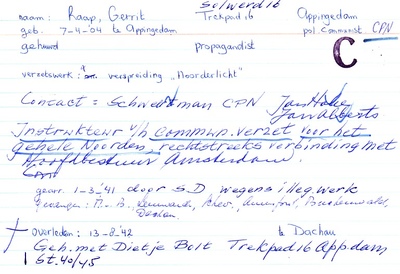 Selwerd 16
naam: Raap, Gerrit Trekpad 16 Appingedam
geb. 7-4-04 te Appingedam pol. Communist. CPN
gehuwd propagandist
C
verzetswerk: verspreiding "Noorderlicht"
Contact = Schwertman CPN Jan
Jan Alberts
Instrukteur v/h Commun. verzet voor het
gehele Noorden, rechtstreeks verbinding met
Hoofdbestuur Amsterdam.
gearr. 1-3-'41 door S.D. wegens illeg. werk
gevangen: Leeuwarden, Schev., Amersfoort, Buchenwald,
Dachau.
overleden: 13-8-'42 te Dachau
Geh. met Dietje Bolt Trekpad 16 Appdam
St. 40/45